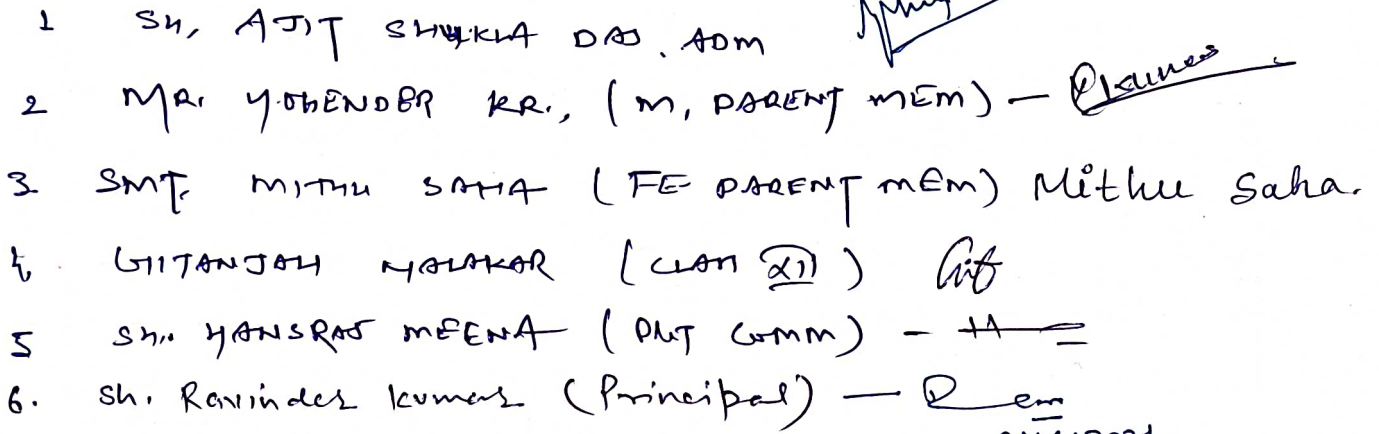 1 Sh, AJIT SHUKLA DAS, ADM
2 MR. YOGENDER KR., (M, PARENT MEM) –
3 SMT. MITHU SAHA (FE PARENT MEM) Mithu Saha.
4. GITANJALI MALAKAR (CLASS XII)
5 Sh. HANSRAJ MEENA (PGT COMM) –
6. Sh. Ravinder Kumar (Principal) –